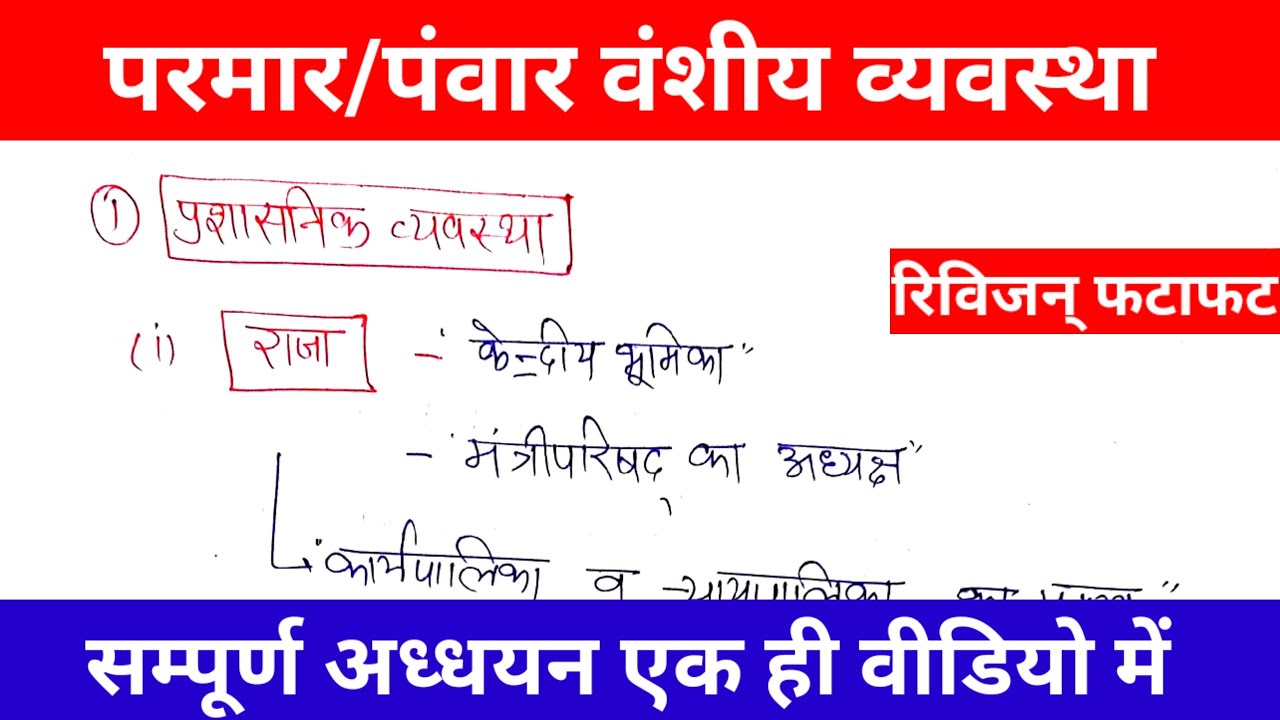 परमार/पंवार वंशीय व्यवस्था
① प्रशासनिक व्यवस्था
रिविजन् फटाफट
(i) राजा - "केन्द्रीय भूमिका"
- "मंत्रीपरिषद् का अध्यक्ष"
"कार्यपालिका व न्यायपालिका का
सम्पूर्ण अध्धयन एक ही वीडियो में